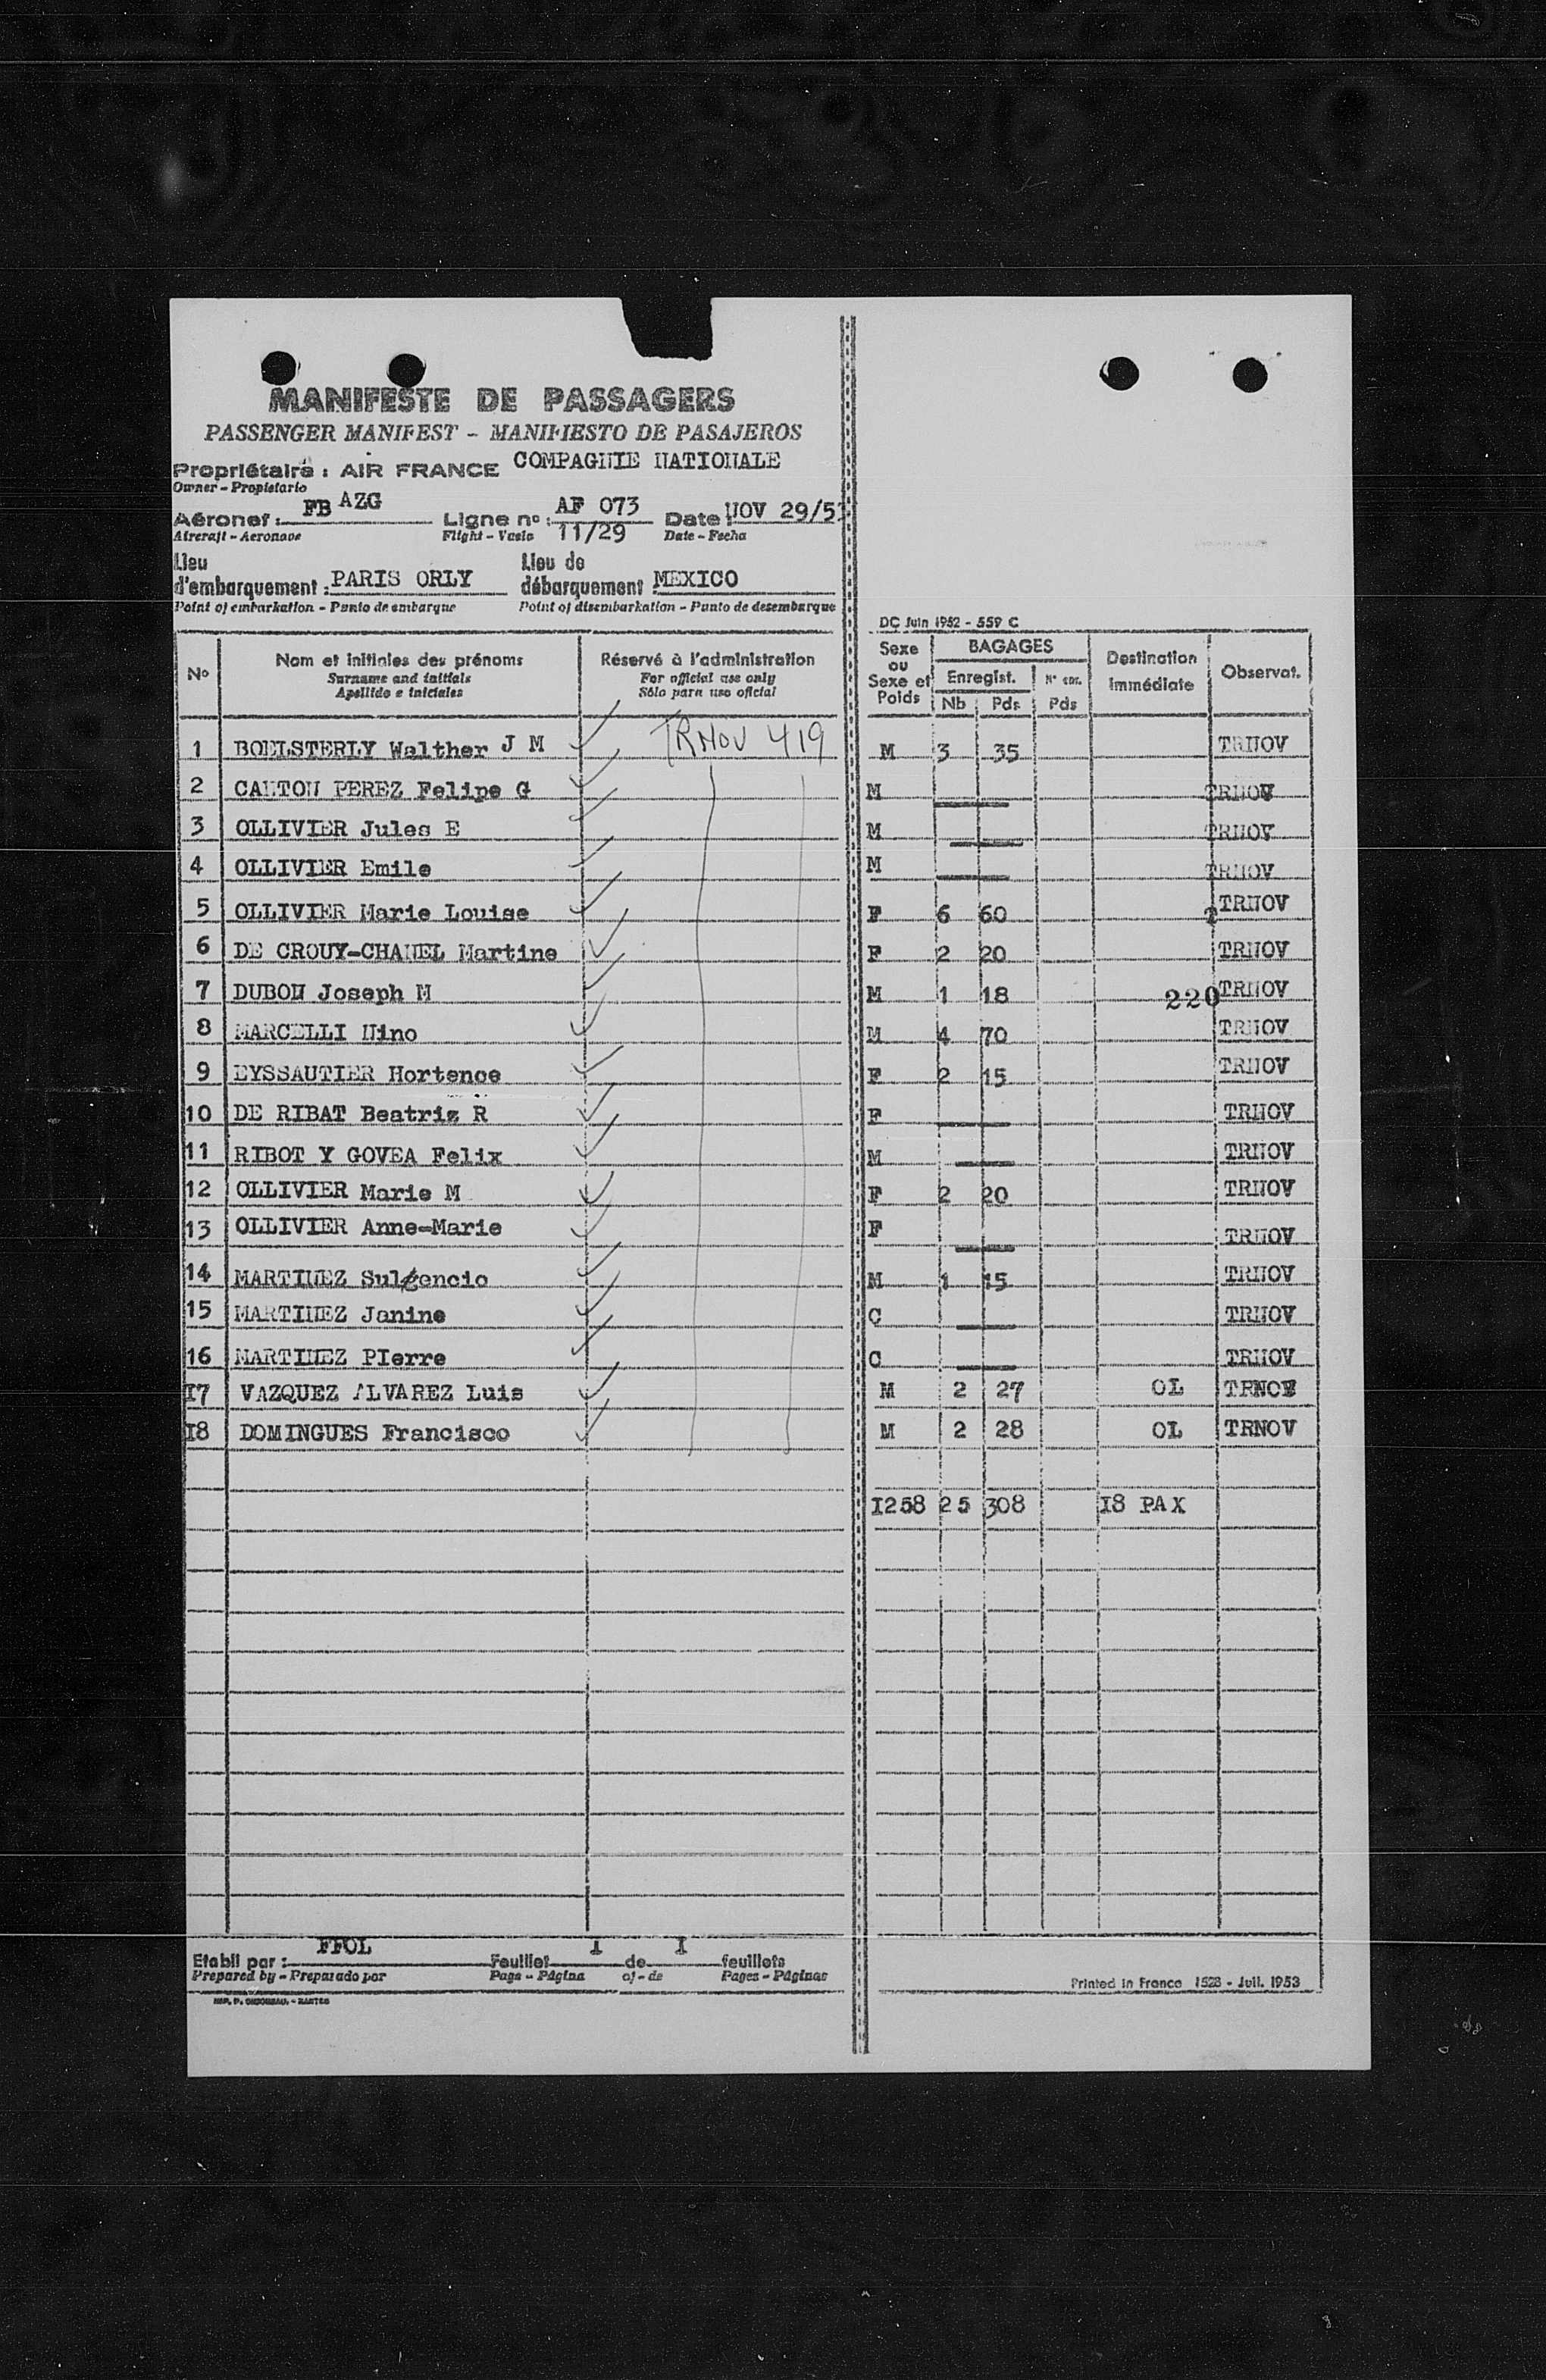 MANIFESTE DE PASSAGERS
PASSENGER MANIFEST - MANIFIESTO DE PASAJEROS
Propriétaire : AIR FRANCE COMPAGNIE NATIONALE
Owner - Propietario
Aéronef : FB AZG Ligne no : AF 073 11/29 Date : NOV 29/53
Aircraft - Aeronave Flight - Date - Fecha
Lieu d'embarquement : PARIS ORLY Lieu de débarquement MEXICO
Point of embarkation - Punto de embarque Point of disembarkation - Punto de desembarque
DC Juin 1952 - 559 C
No Nom et initiales des prénoms Réservé à l'administration Sexe ou Sexe et Poids BAGAGES Destination immédiate Observat.
Surname and initials For official use only Enregist.
Apellido e iniciales Sólo para uso oficial Nb Pds Pds
1 BOELSTERLY Walther J M TRNOV 419 M 3 35 TRNOV
2 CANTON PEREZ Felipe G M TRNOV
3 OLLIVIER Jules E M TRNOV
4 OLLIVIER Emile M TRNOV
5 OLLIVIER Marie Louise F 6 60 TRNOV
6 DE CROUY-CHANEL Martine F 2 20 TRNOV
7 DUBON Joseph M M 1 18 220 TRNOV
8 MARCELLI Nino M 4 70 TRNOV
9 EYSSAUTIER Hortence F 2 15 TRNOV
10 DE RIBAT Beatriz R F TRNOV
11 RIBOT Y GOVEA Felix M TRNOV
12 OLLIVIER Marie M F 2 20 TRNOV
13 OLLIVIER Anne-Marie F TRNOV
14 MARTINEZ Sulgencio M 1 15 TRNOV
15 MARTINEZ Janine C TRNOV
16 MARTINEZ PIerre C TRNOV
I7 VAZQUEZ ALVAREZ Luis M 2 27 OL TRNOV
I8 DOMINGUES Francisco M 2 28 OL TRNOV
I258 25 308 I8 PAX
Etabli par : FFOL Feuillet 1 de I feuillets
Prepared by - Preparado por Page - Página of - de Pages - Páginas
Printed in France 1528 - Juil. 1953